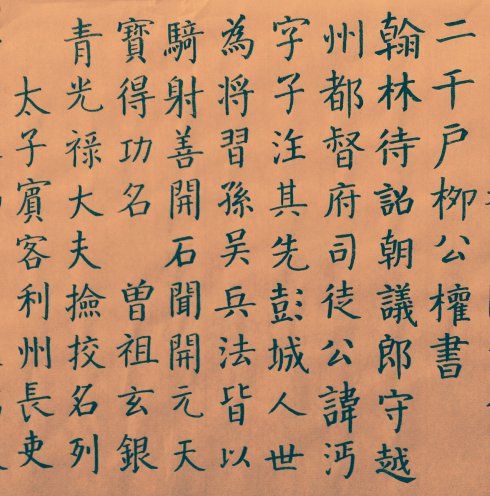 二千户柳公權書
翰林待詔朝議郎守越
州都督府司徒公諱沔
字子注其先彭城人世
為将習孫吳兵法皆以
騎射善開石聞開元天
寶得功名 曾祖玄銀
青光禄大夫撿挍名列
太子賓客利州長吏